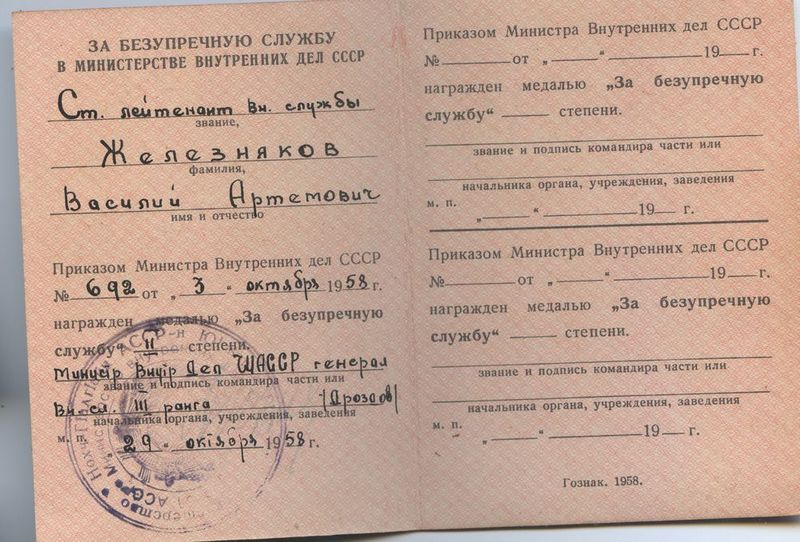 ЗА БЕЗУПРЕЧНУЮ СЛУЖБУ
В МИНИСТЕРСТВЕ ВНУТРЕННИХ ДЕЛ СССР
Ст. лейтенант вн. службы
звание,
Железняков
фамилия,
Василий Артемович
имя и отчество
Приказом Министра Внутренних дел СССР
№ 692 от „ 3 “ октября 1958 г.
награжден медалью „За безупречную
службу“ II степени.
Министр Внутр Дел ЧИАССР генерал
звание и подпись командира части или
Вн. сл. III ранга (Дроздов)
начальника органа, учреждения, заведения
м. п. „ 29 “ октября 1958 г.
Приказом Министра Внутренних дел СССР
№ от „ “ 19 г.
награжден медалью „За безупречную
службу“ степени.
звание и подпись командира части или
начальника органа, учреждения, заведения
м. п. „ “ 19 г.
Приказом Министра Внутренних дел СССР
№ от „ “ 19 г.
награжден медалью „За безупречную
службу“ степени.
звание и подпись командира части или
начальника органа, учреждения, заведения
м. п. „ “ 19 г.
Гознак. 1958.